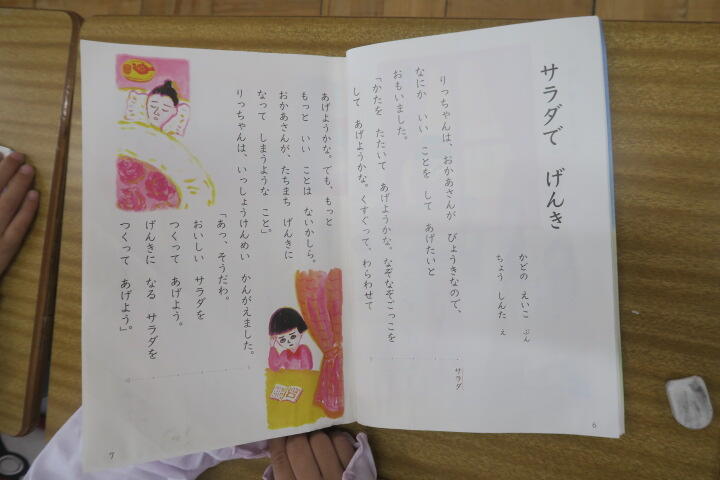 サラダで　げんき
かどの　えいこ　ぶん
ちょう　しんた　え
りっちゃんは、おかあさんが　びょうきなので、
なにか　いい　ことを　して　あげたいと
おもいました。
「かたを　たたいて　あげようかな。なぞなぞごっこを
して　あげようかな。くすぐって、わらわせて
サラダ
6
あげようかな。でも、もっと
もっと　いい　ことは　ないかしら。
おかあさんが、たちまち　げんきに
なって　しまうような　こと」。
りっちゃんは、いっしょうけんめい　かんがえました。
「あっ、そうだわ。
おいしい　サラダを
つくって　あげよう。
げんきに　なる　サラダを
つくって　あげよう」。
7